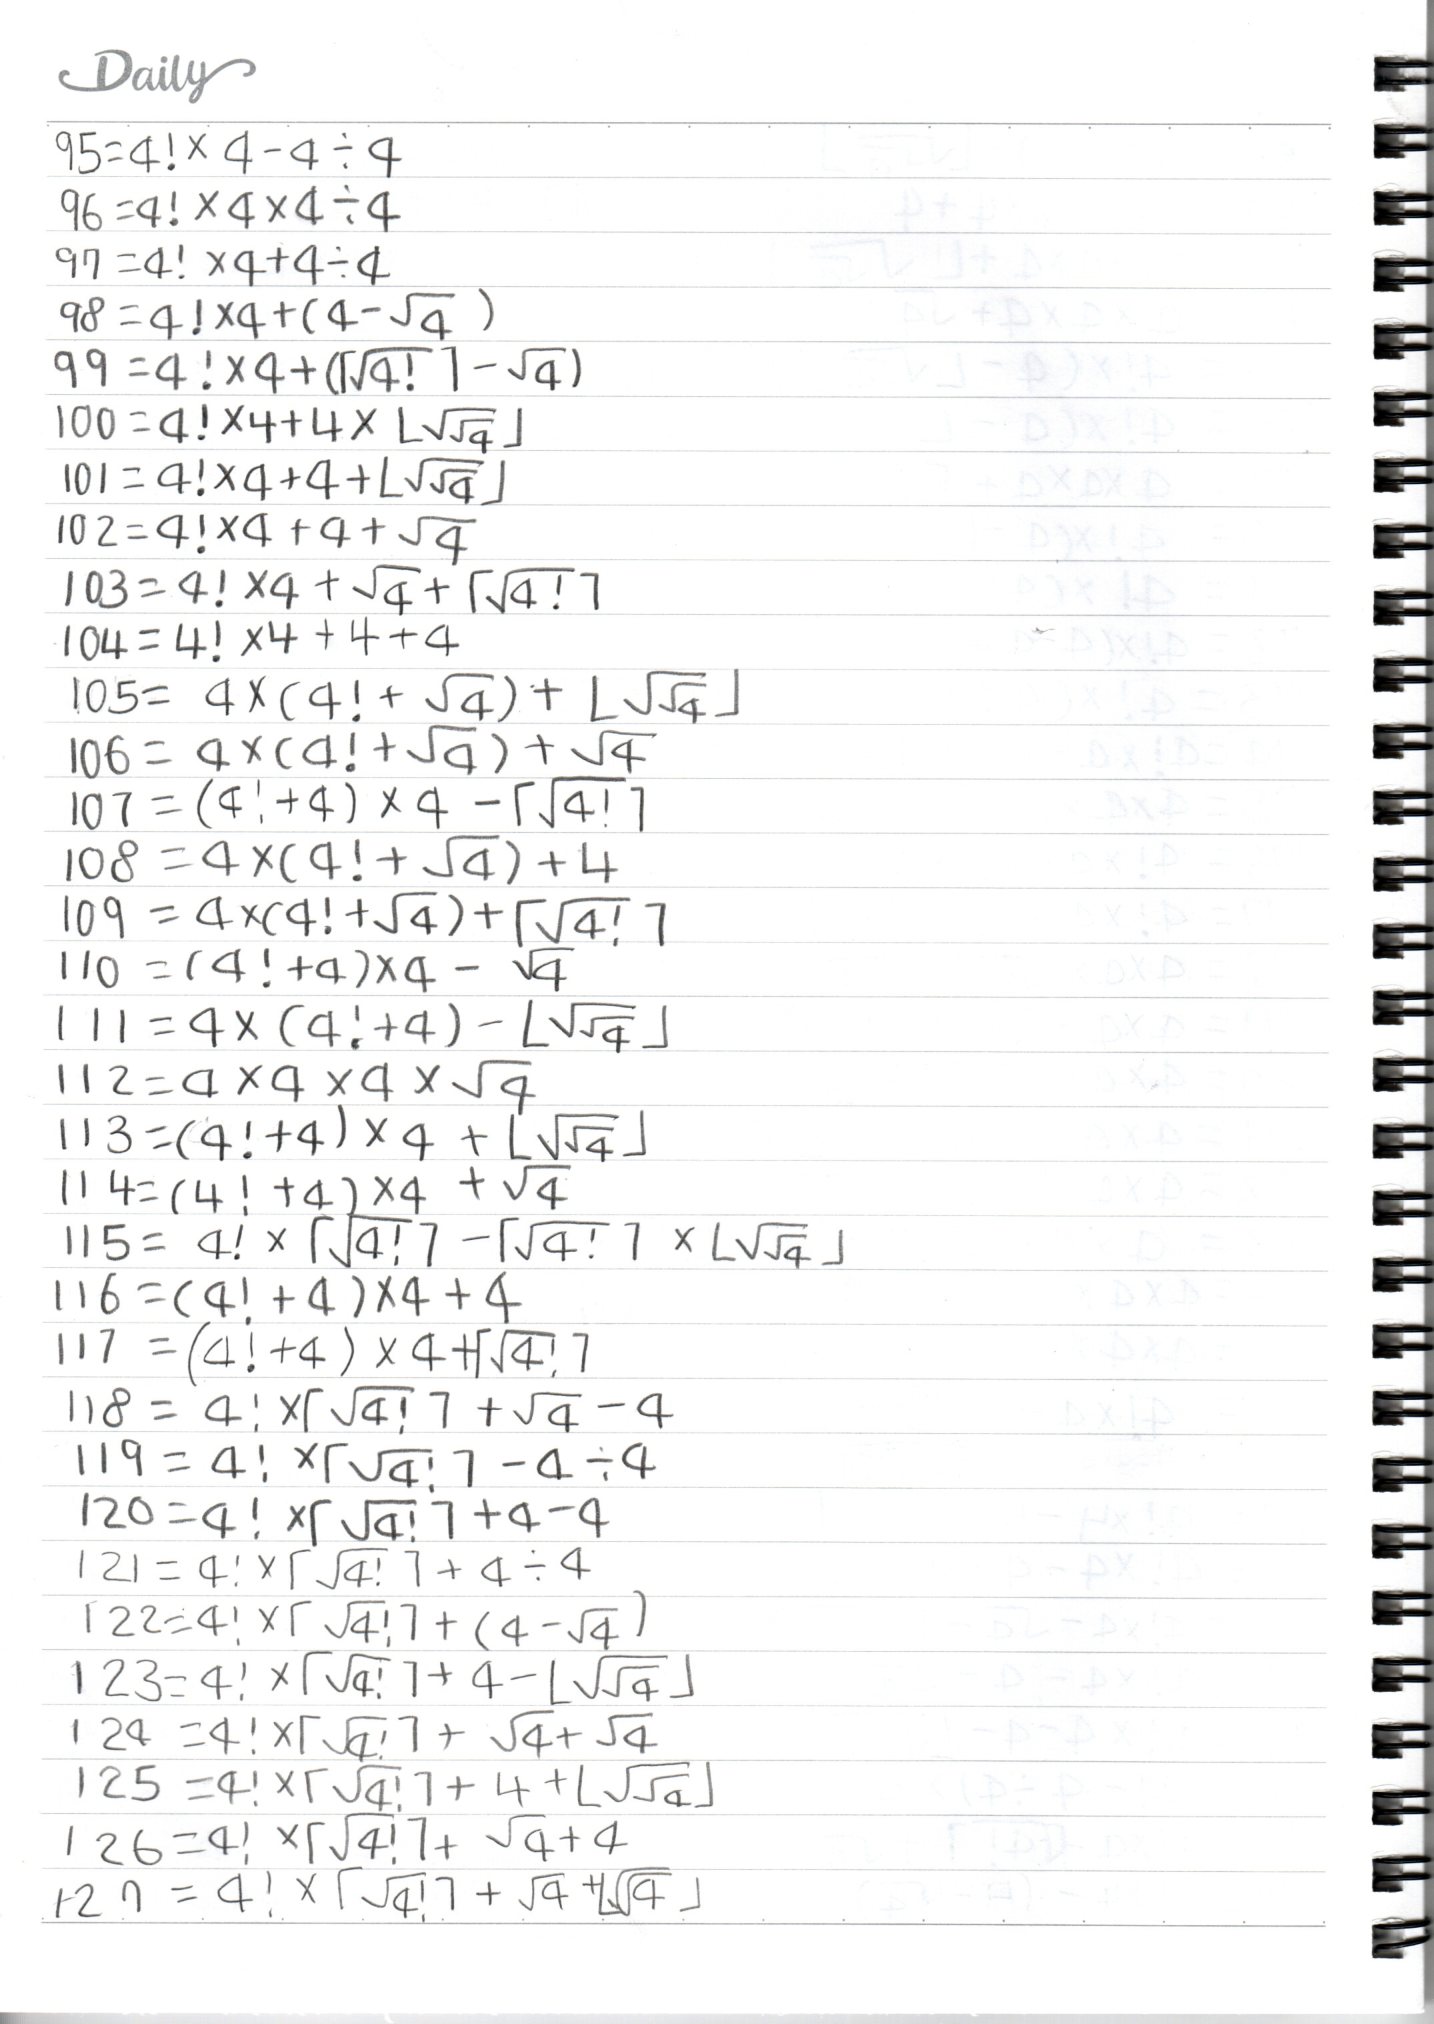 Daily
95=4!×4-4÷4
96=4!×4×4÷4
97=4!×4+4÷4
98=4!×4+(4-√4)
99=4!×4+(⌈√4!⌉-√4)
100=4!×4+4×⌊√√4⌋
101=4!×4+4+⌊√√4⌋
102=4!×4+4+√4
103=4!×4+√4+⌈√4!⌉
104=4!×4+4+4
105=4×(4!+√4)+⌊√√4⌋
106=4×(4!+√4)+√4
107=(4!+4)×4-⌈√4!⌉
108=4×(4!+√4)+4
109=4×(4!+√4)+⌈√4!⌉
110=(4!+4)×4-√4
111=4×(4!+4)-⌊√√4⌋
112=4×4×4×√4
113=(4!+4)×4+⌊√√4⌋
114=(4!+4)×4+√4
115=4!×⌈√4!⌉-⌈√4!⌉×⌊√√4⌋
116=(4!+4)×4+4
117=(4!+4)×4+⌈√4!⌉
118=4!×⌈√4!⌉+√4-4
119=4!×⌈√4!⌉-4÷4
120=4!×⌈√4!⌉+4-4
121=4!×⌈√4!⌉+4÷4
122=4!×⌈√4!⌉+(4-√4)
123=4!×⌈√4!⌉+4-⌊√√4⌋
124=4!×⌈√4!⌉+√4+√4
125=4!×⌈√4!⌉+4+⌊√√4⌋
126=4!×⌈√4!⌉+√4+4
127=4!×⌈√4!⌉+√4+⌊√√4⌋